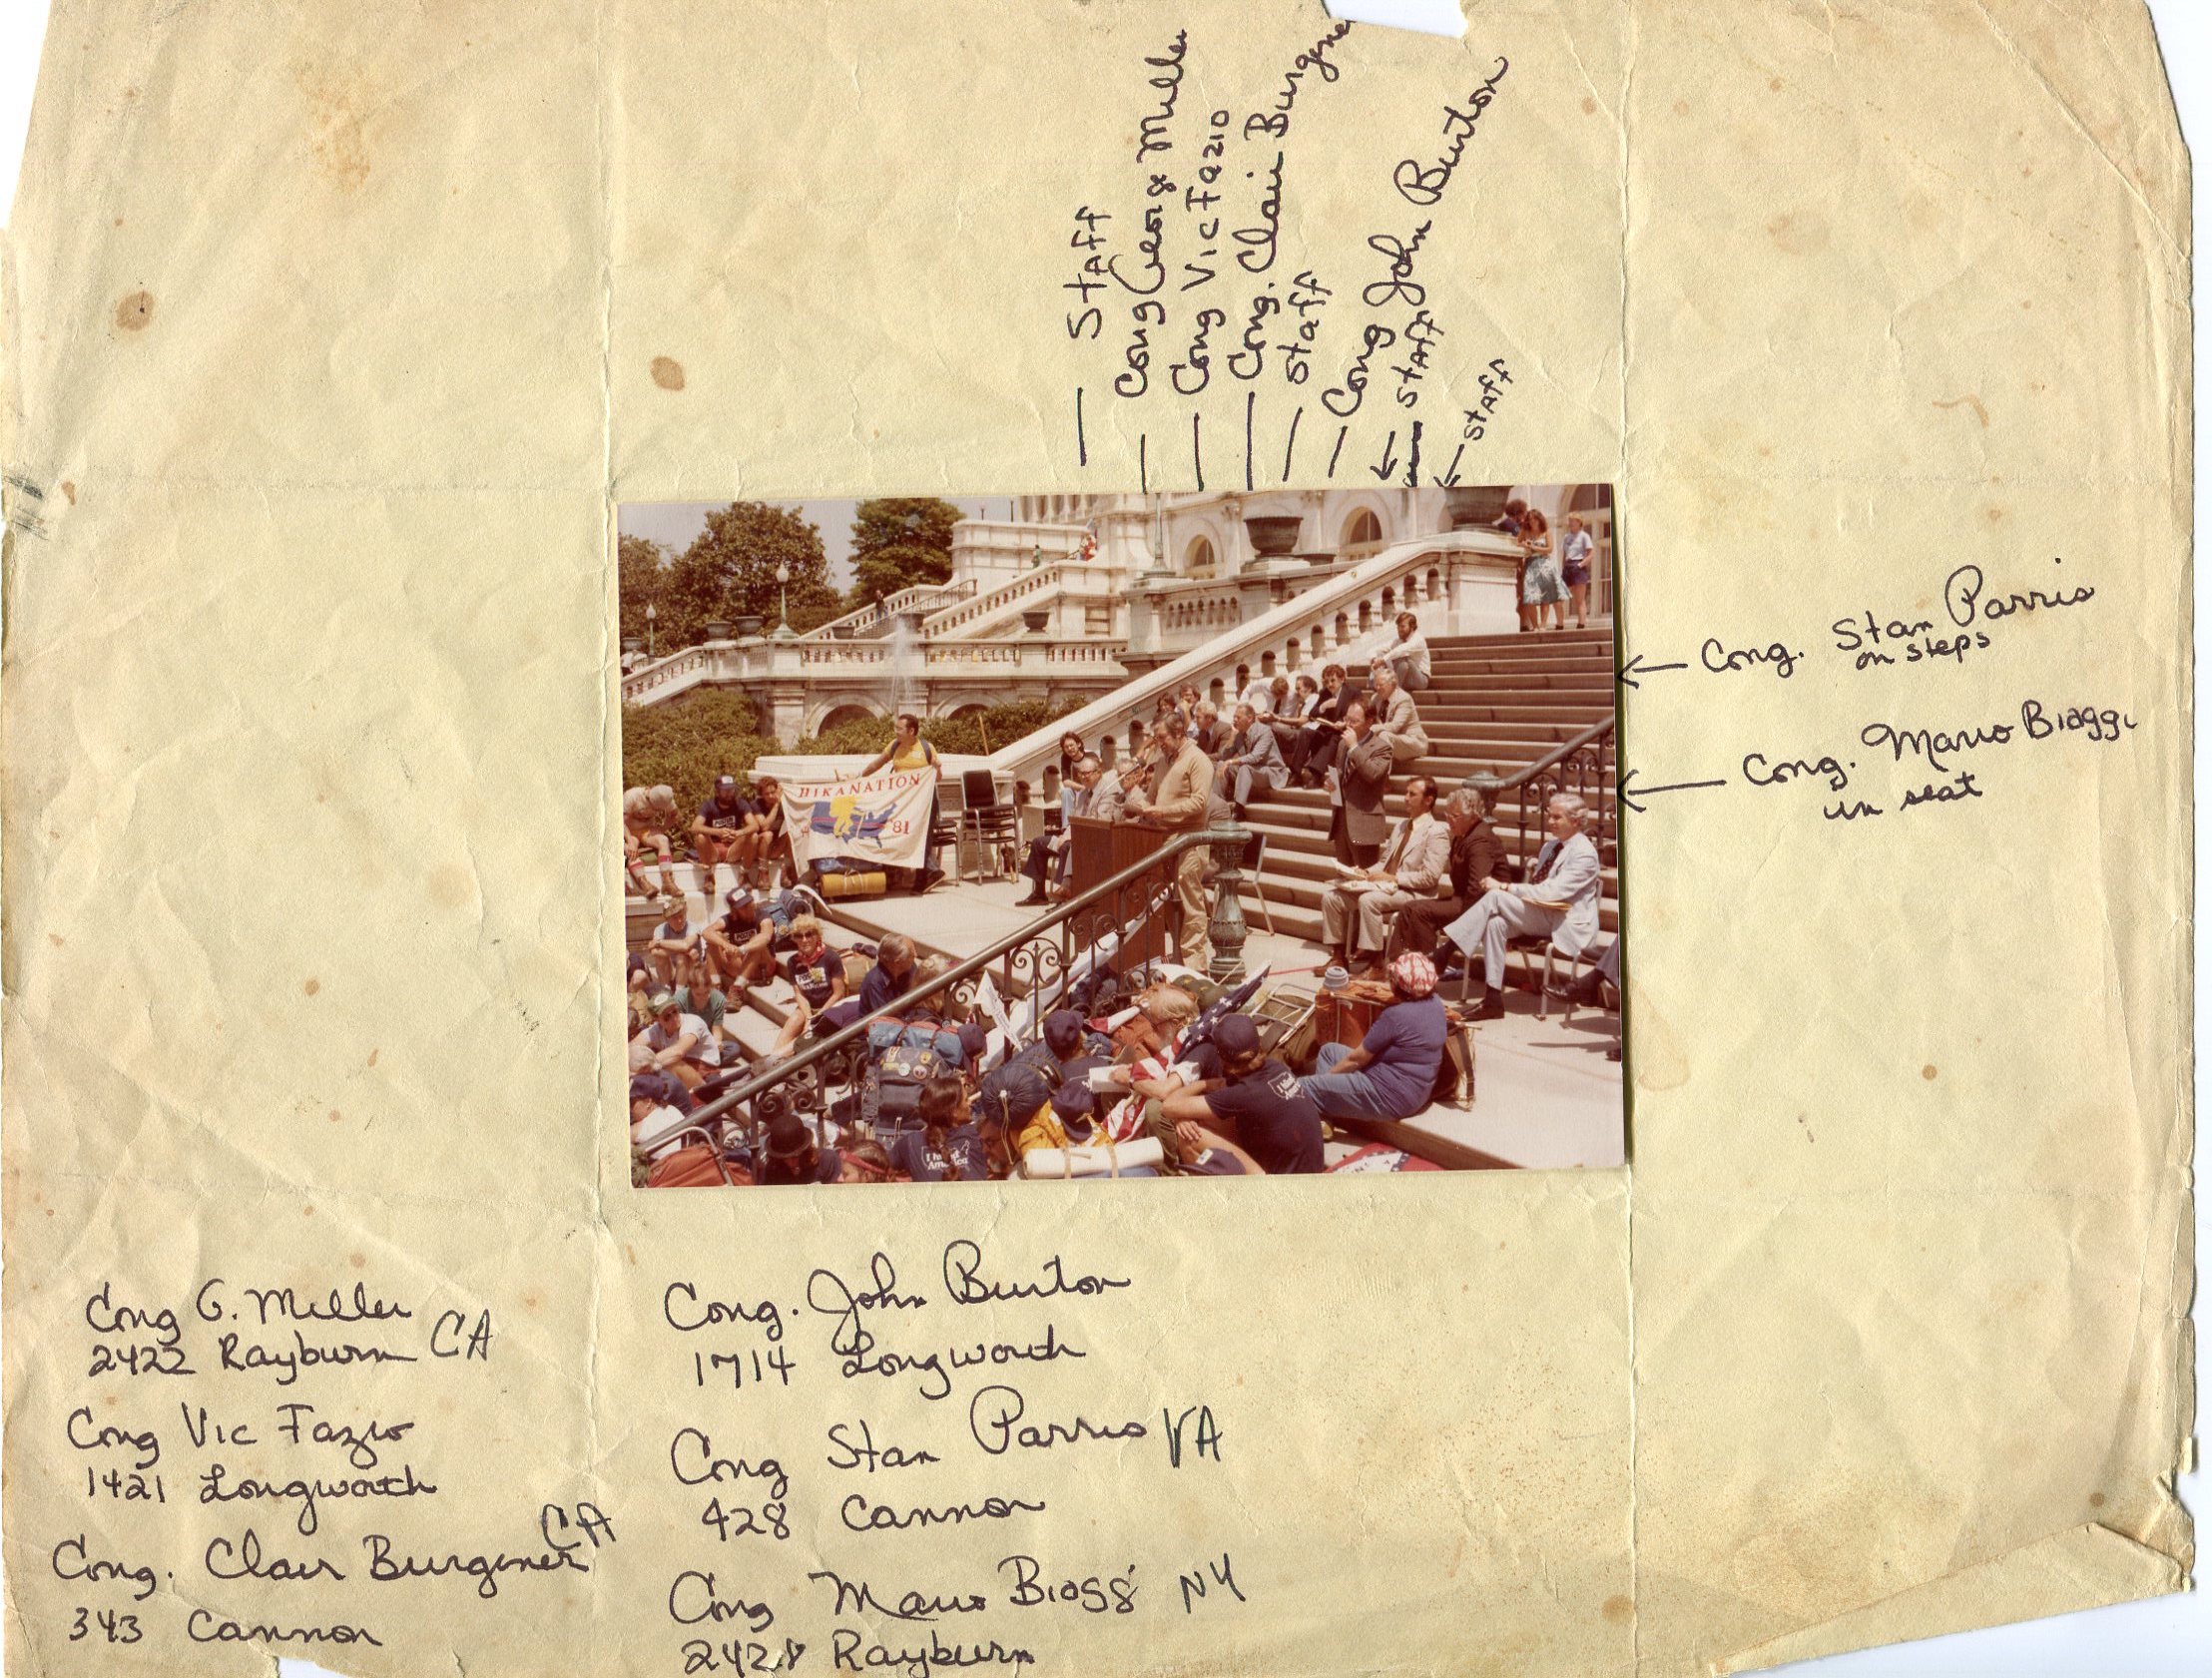 Staff
Cong George Miller
Cong Vic Fazio
Cong. Clair Burgene
Staff
Cong John Burton
Staff
Staff
Cong. Stan Parris
on steps
Cong. Mario Biaggi
in seat
HIKANATION
'81
I
America
Cong G. Miller
2422 Rayburn CA
Cong Vic Fazio
1421 Longworth
Cong. Clair Burgener CA
343 Cannon
Cong. John Burton
1714 Longworth
Cong Stan Parris VA
428 Cannon
Cong Mario Biaggi NY
2428 Rayburn